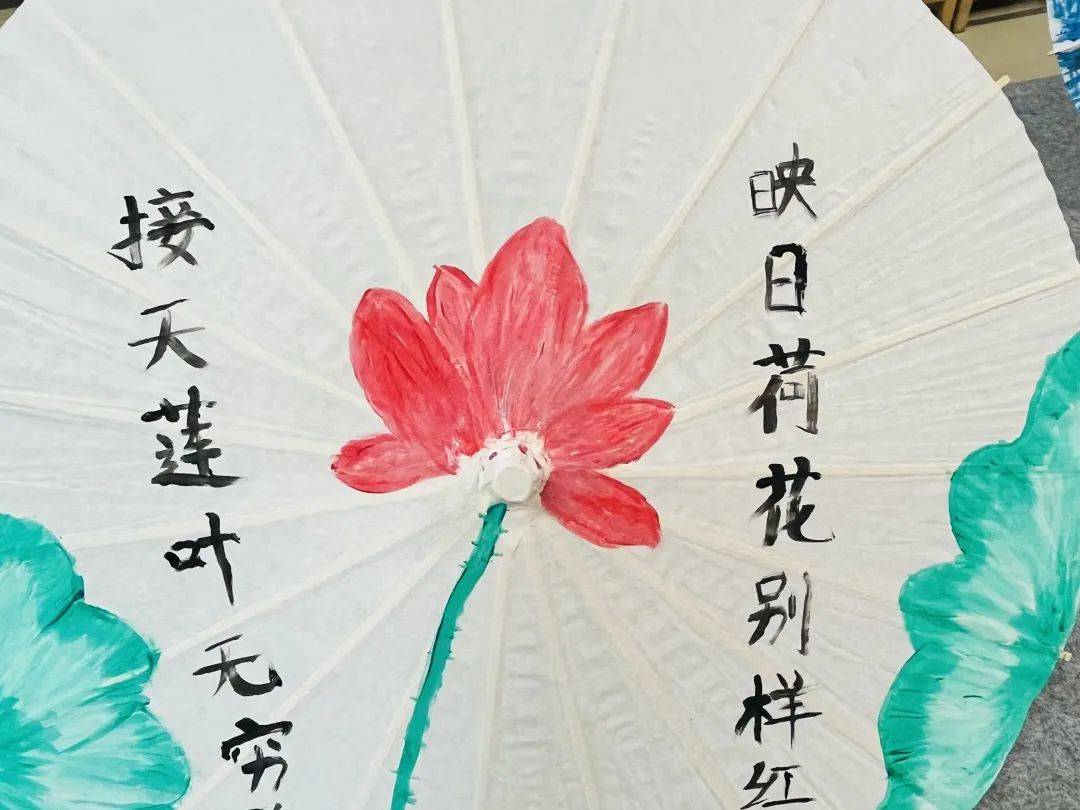 接天莲叶无穷
映日荷花别样红